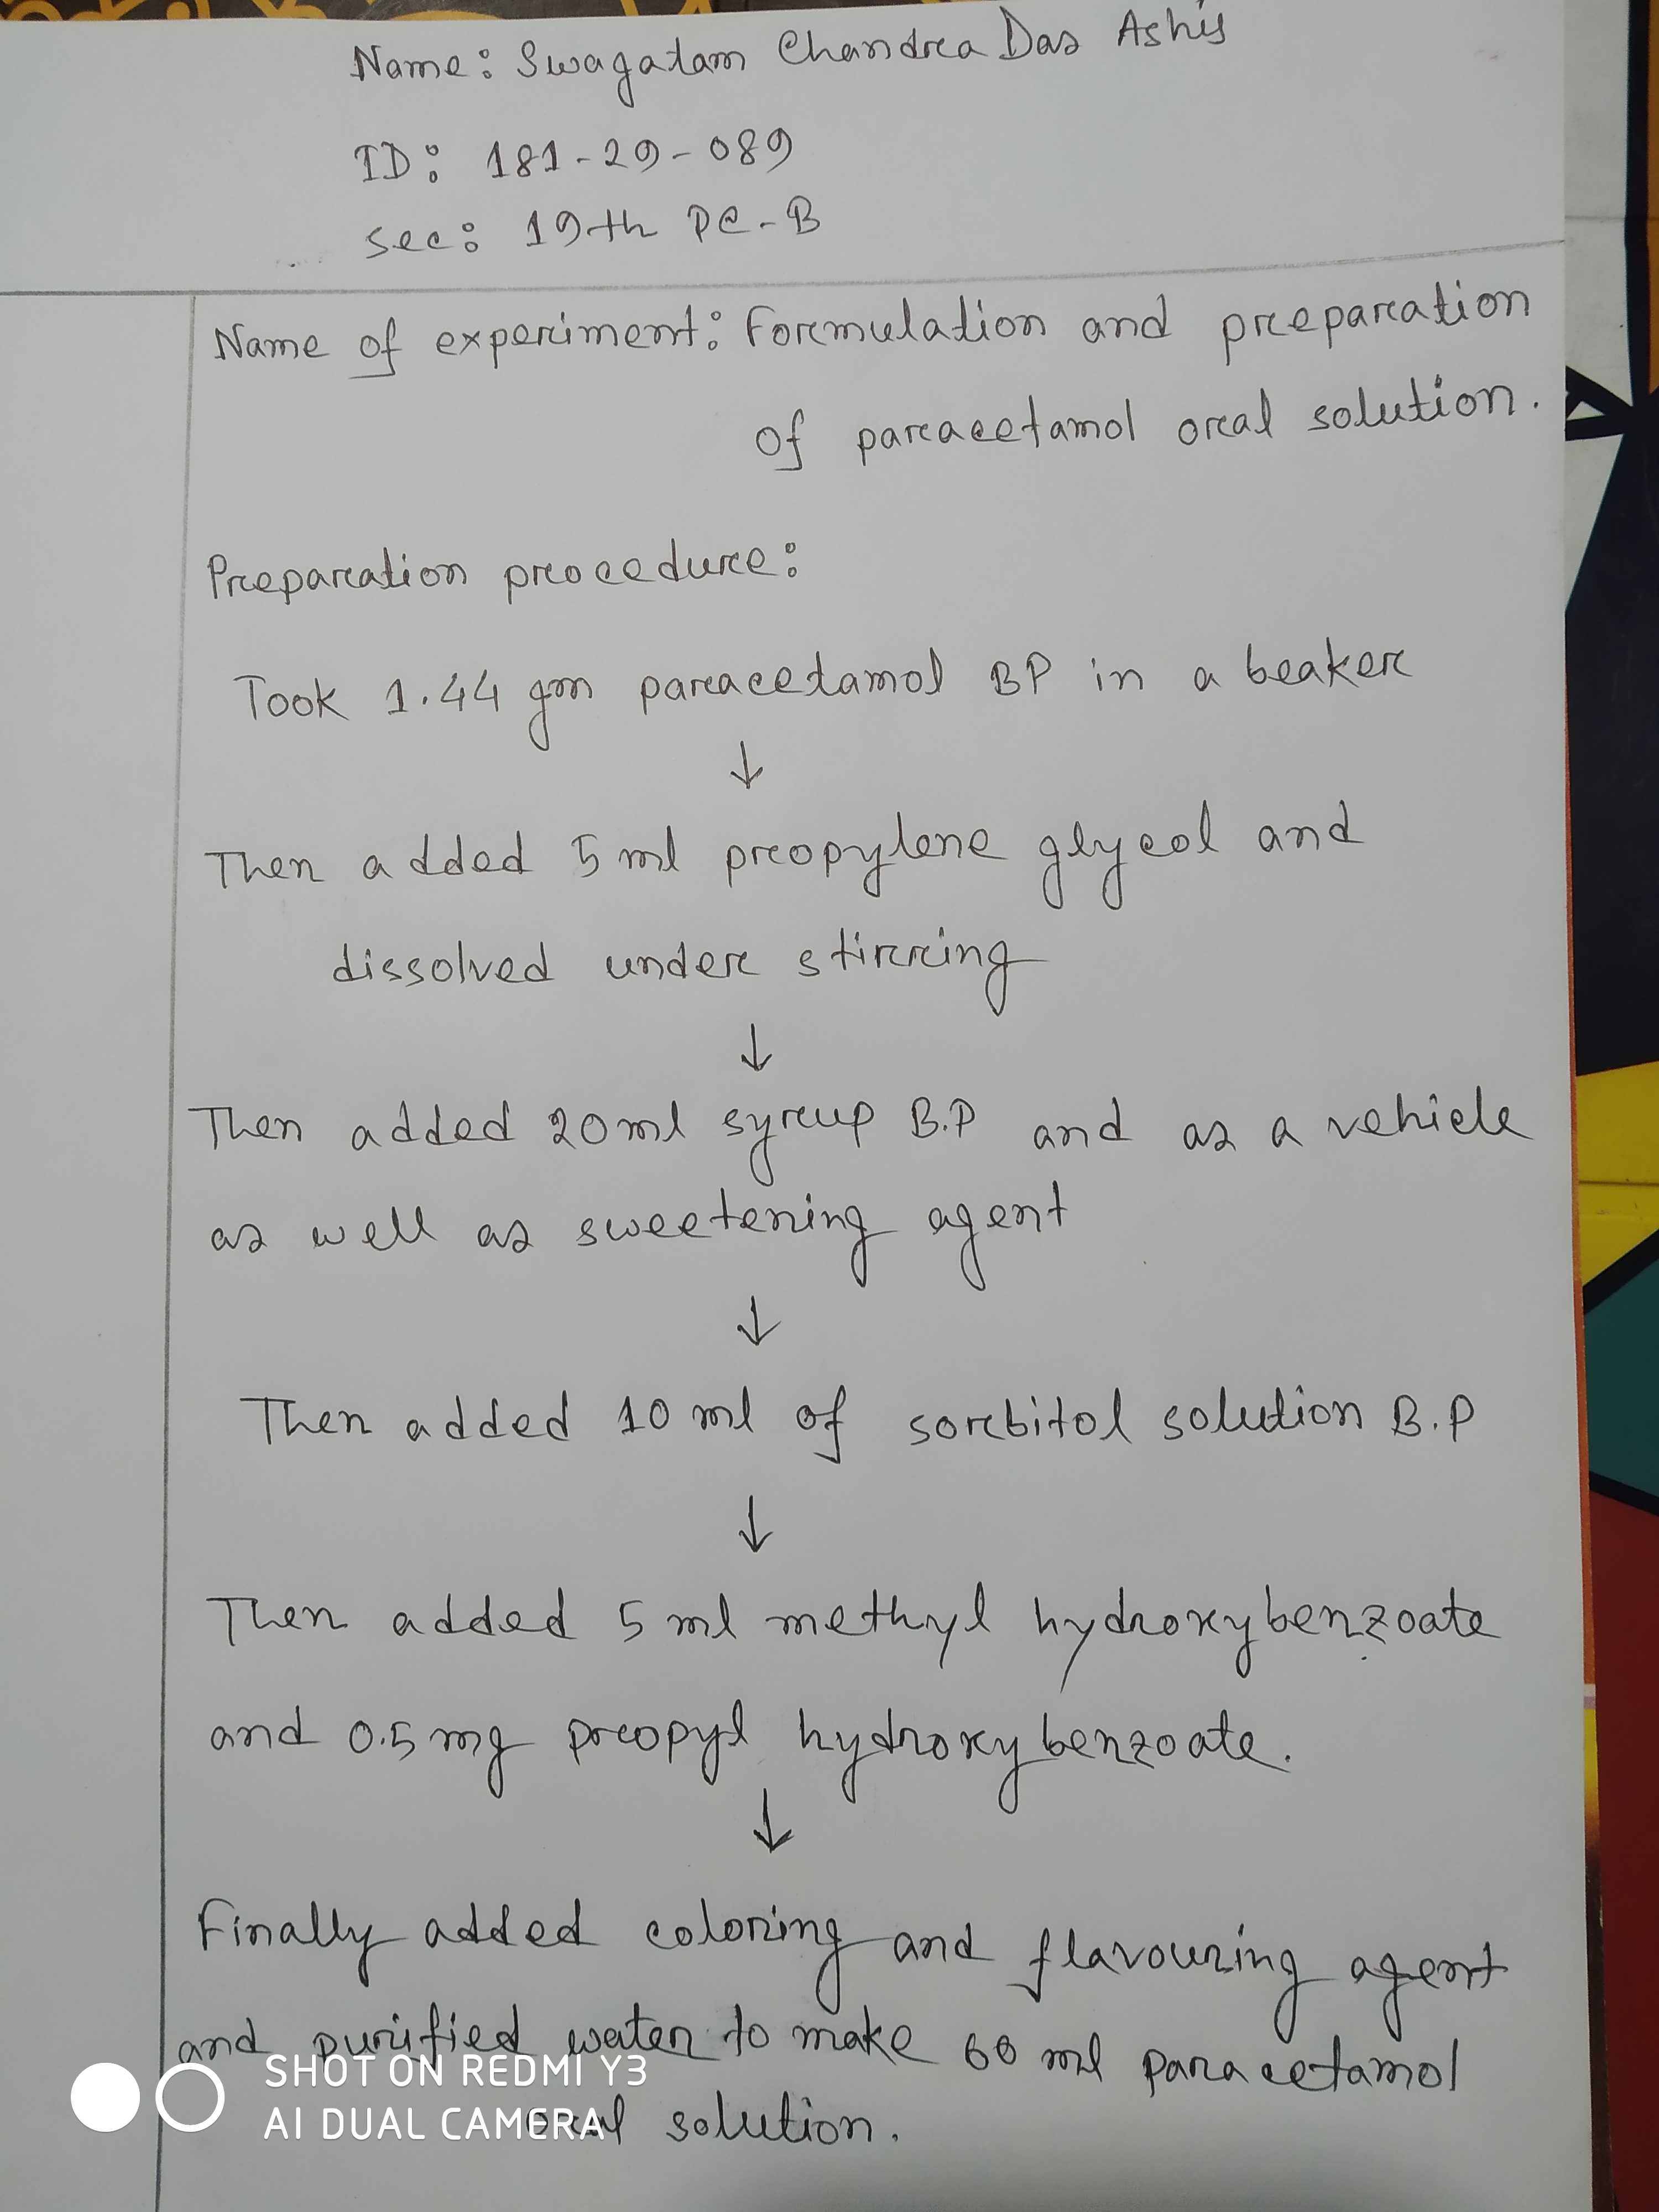 Name: Swagatam Chandra Das Ashis
ID: 181-29-089
Sec: 19th PC-B
Name of experiment: Formulation and preparation
of paracetamol oral solution.
Preparation procedure:
Took 1.44 gm paracetamol BP in a beaker
↓
Then added 5 ml propylene glycol and
dissolved under stirring
↓
Then added 20ml syrup B.P and as a vehicle
as well as sweetening agent
↓
Then added 10 ml of sorbitol solution B.P
↓
Then added 5 ml methyl hydroxybenzoate
and 0.5 mg propyl hydroxybenzoate.
↓
Finally added coloring and flavouring agent
and purified water to make 60 ml paracetamol
oral solution.
SHOT ON REDMI Y3
AI DUAL CAMERA